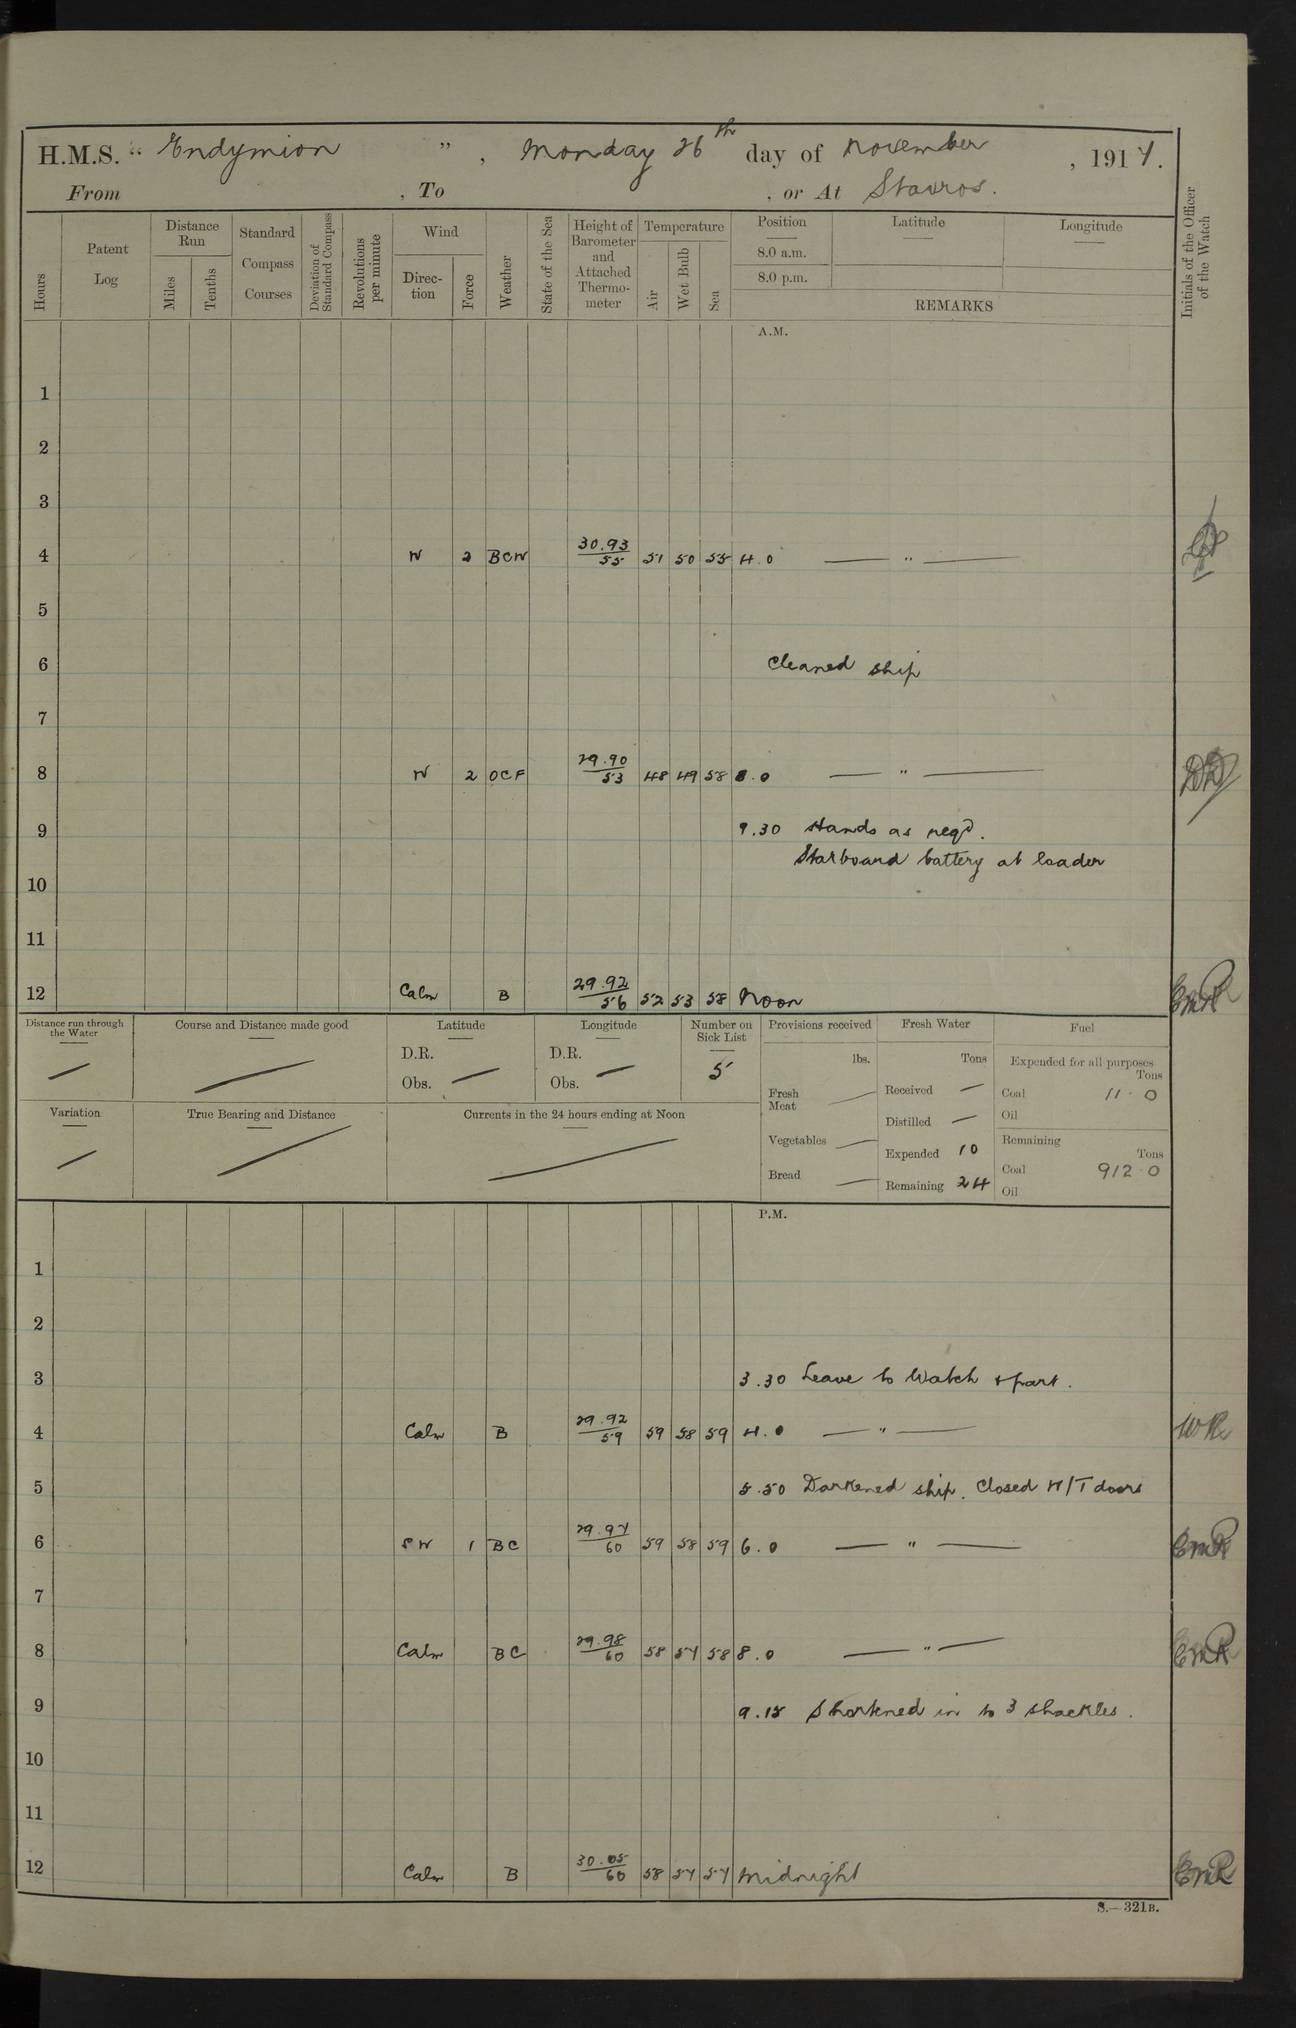 H.M.S. “ Endymion ” , Monday 26th day of November , 1917.
From , To , or At Stavros.
Hours
Patent Log
Distance Run
Miles
Tenths
Standard Compass Courses
Deviation of Standard Compass
Revolutions per minute
Wind
Direc-tion
Force
Weather
State of the Sea
Height of Barometer and Attached Thermo-meter
Temperature
Air
Wet Bulb
Sea
Position
8.0 a.m.
8.0 p.m.
Latitude
Longitude
REMARKS
Initials of the Officer of the Watch
A.M.
1
2
3
4 W 2 BCW 30.93 55 51 50 55 4.0 — " —
5
6 Cleaned ship
7
8 W 2 OCF 29.90 53 48 49 58 8.0 — " — DD
9 9.30 Hands as reqd.
Starboard battery at loader
10
11
12 Calm B 29.92 56 52 53 58 Noon EMR
Distance run through the Water
Course and Distance made good
Latitude
D.R.
Obs.
Longitude
D.R.
Obs.
Number on Sick List
5
Provisions received
lbs.
Fresh Meat
Vegetables
Bread
Fresh Water
Tons
Received
Distilled
Expended 10
Remaining 24
Fuel
Expended for all purposes
Tons
Coal 11.0
Oil
Remaining
Tons
Coal 912.0
Oil
Variation
True Bearing and Distance
Currents in the 24 hours ending at Noon
P.M.
1
2
3 3.30 Leave to Watch & part.
4 Calm B 29.92 59 59 58 59 4.0 — " — WR
5 5.50 Darkened ship. Closed W/T doors
6 SW 1 BC 29.97 60 59 58 59 6.0 — " — EMR
7
8 Calm BC 29.98 60 58 57 58 8.0 — " — EMR
9 9.15 Shortened in to 3 shackles.
10
11
12 Calm B 30.05 60 58 57 57 Midnight EMR
S.—321B.